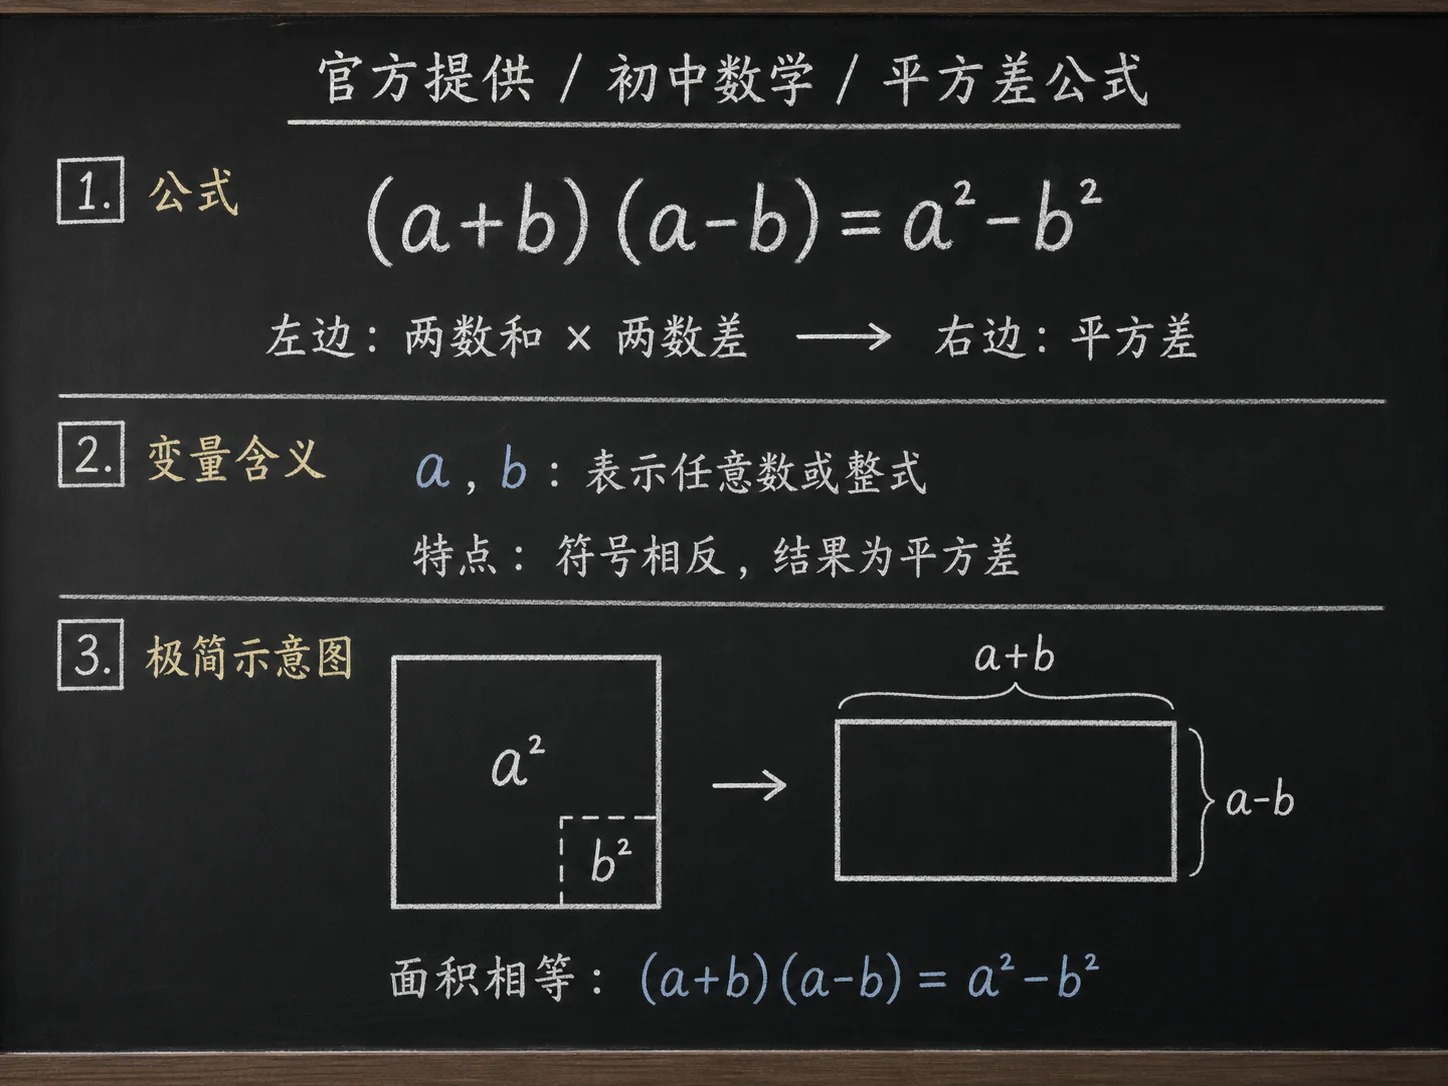 官方提供 / 初中数学 / 平方差公式
1. 公式
(a+b)(a-b)=a²-b²
左边：两数和 × 两数差 → 右边：平方差
2. 变量含义
a, b：表示任意数或整式
特点：符号相反，结果为平方差
3. 极简示意图
a²
b²
→
a+b
a-b
面积相等：(a+b)(a-b) = a²-b²